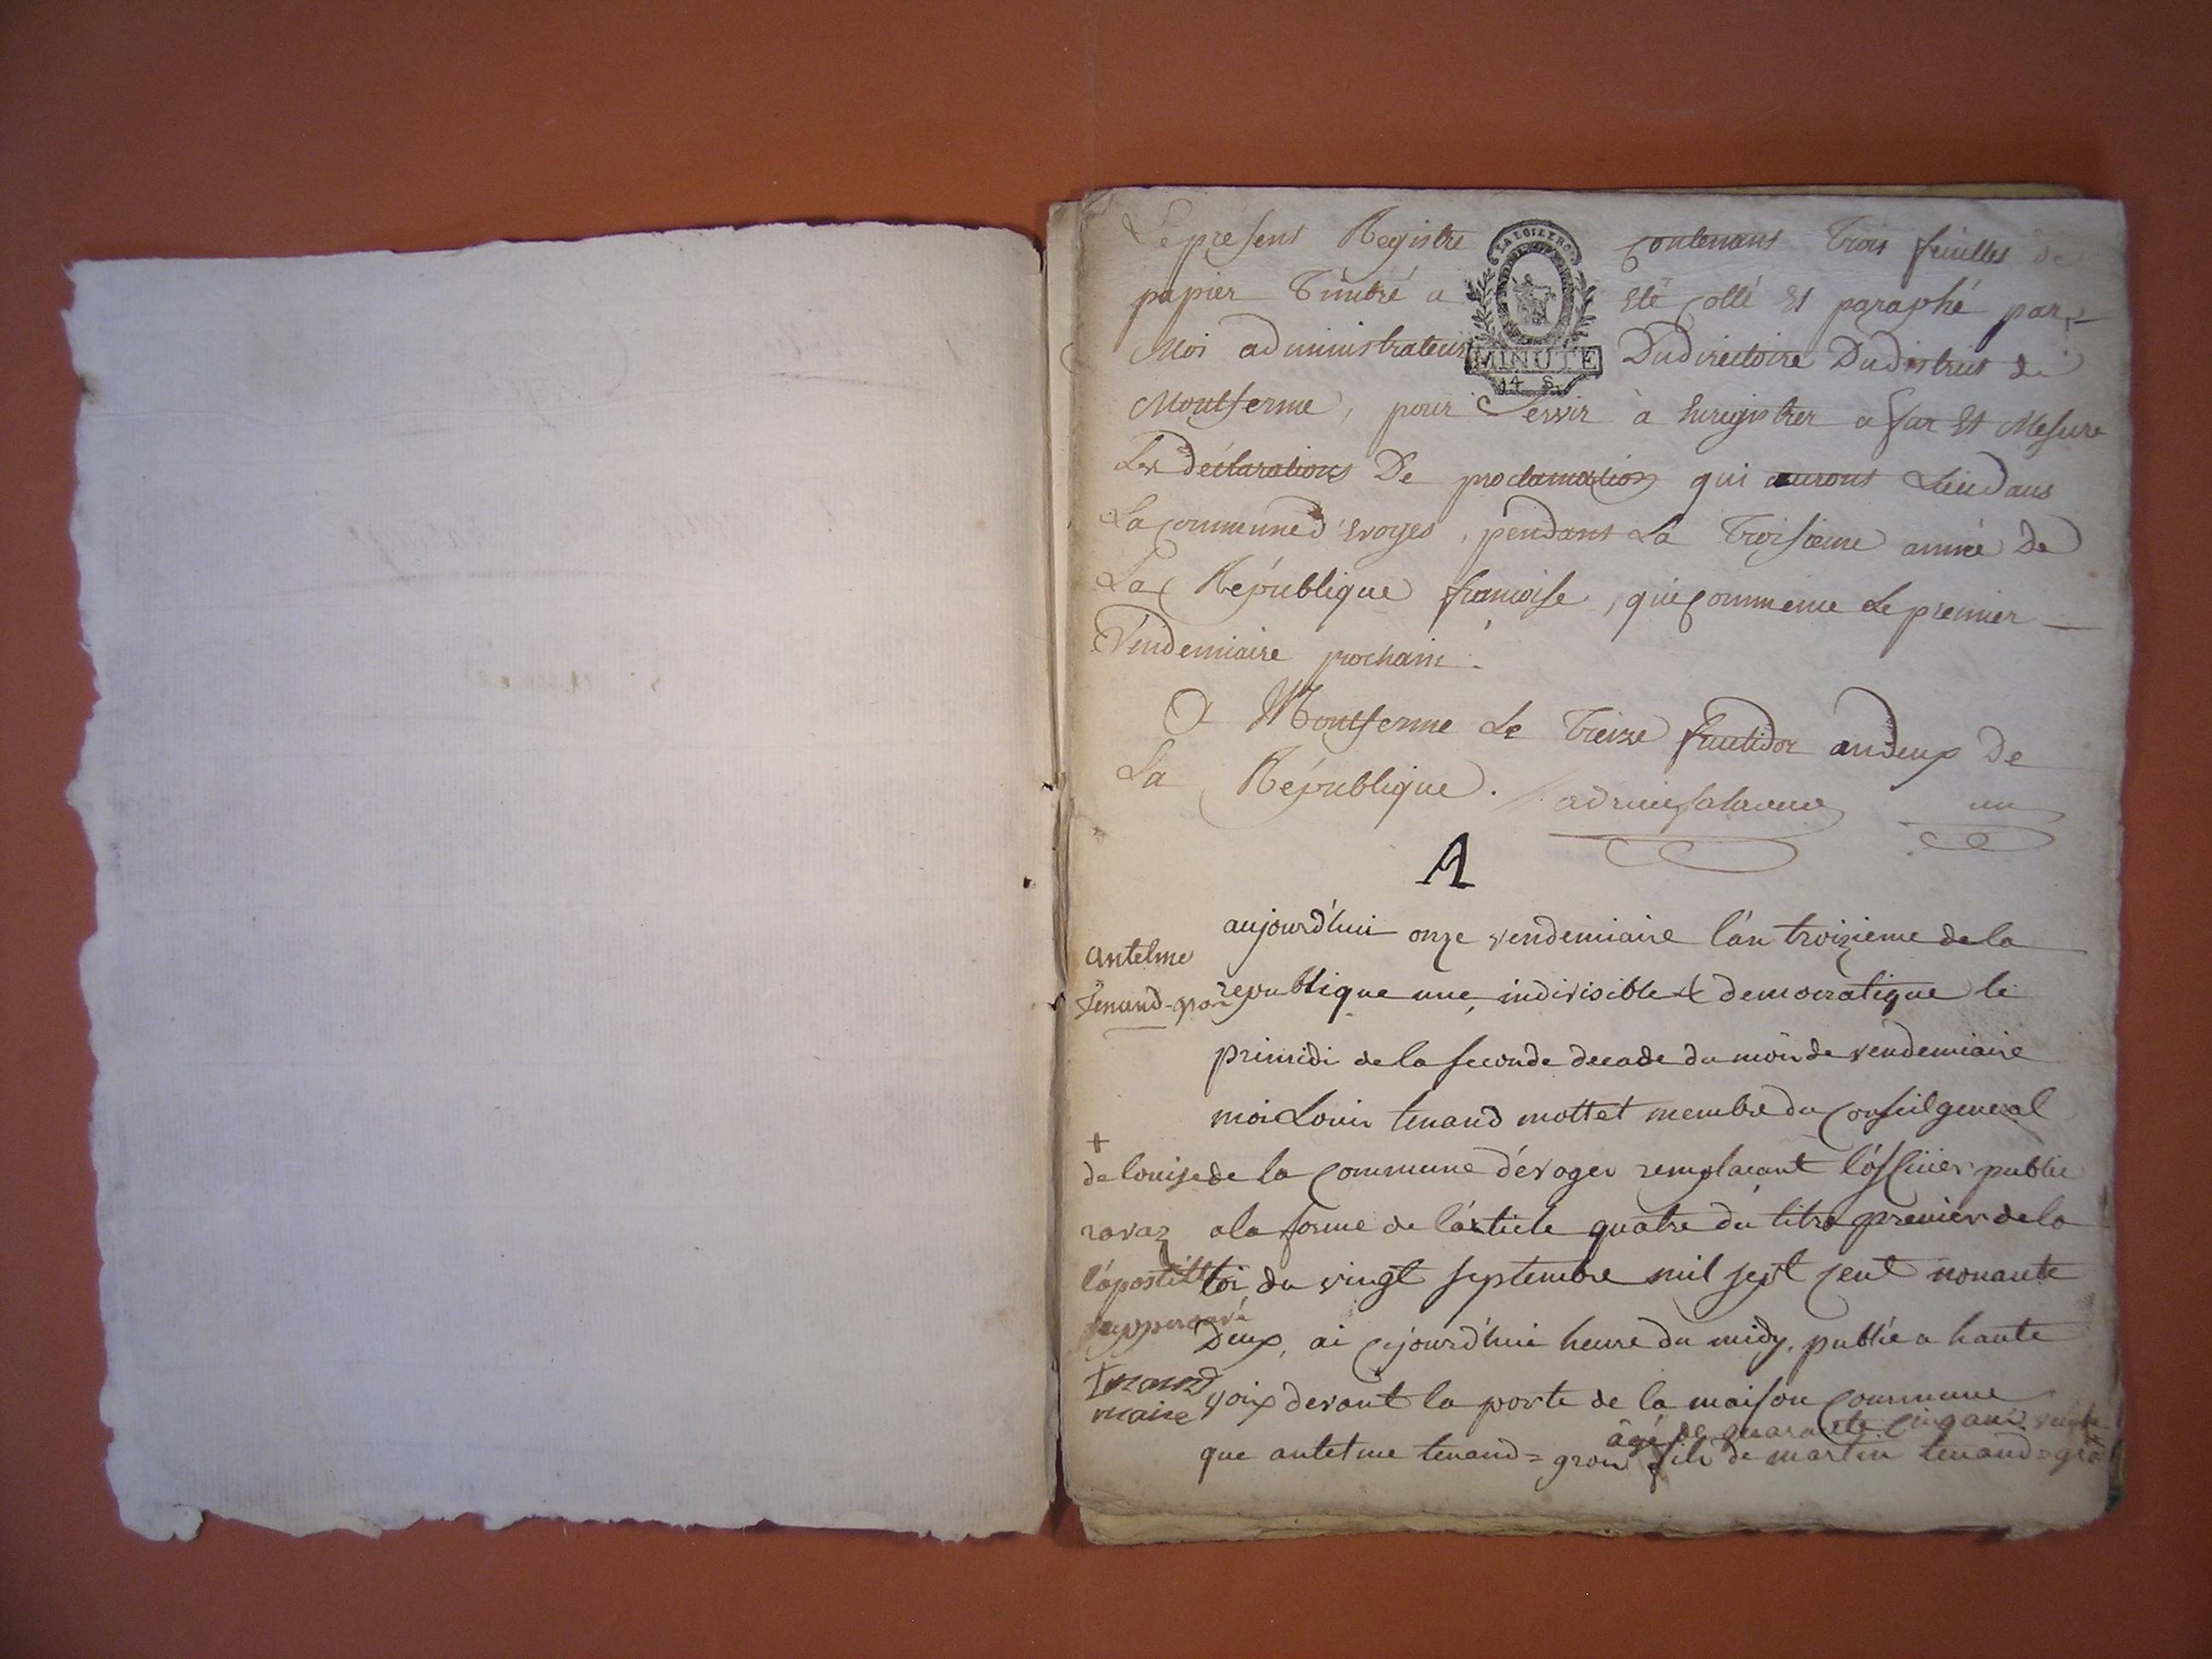 Le present Registre contenant Trois feuilles de
papier Timbré a été Cotté Et paraphé par
Moi administrateur Dudirectoire Dudistrict de
Montferme, pour Servir à Enregistrer a fur Et Mesure
Les déclarations De proclamation qui auront Lieu dans
La Commune d'Evoges, pendant La Troisieme année de
La République francoise, qui Commence Le premier
Vendemiaire prochain.
A Montferme Le Treize fructidor an deux De
La République.
un
LA LOI LE RO
MINUTE
14 S.
A
Antelme
Tenand-gros
aujourd'hui onze vendemiaire l'an troizieme de la
republique une, indivisible & democratique le
primidi de la seconde decade du mois de vendemiaire
moi Louis tenand mottet membre du Conseil general
de la Commune d'évoges remplacant l'officier public
a la forme de l'article quatre du titre premier de la
loi du vingt septembre mil sept cent nonante
Deux, ai cejourd'hui heure du midy, publié a haute
voix devant la porte de la maison Commune
âgé de quarante cinq ans
que antelme tenand = gros fils de martin tenand = gros
+
de louise
ravaz
l'apostille
approuvé
Tenand
maire